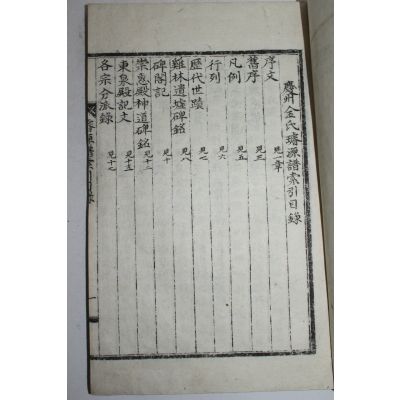 慶州金氏璿源譜索引目錄
序文 見一章
舊序 見三
凡例 見五
行列 見六
歷代世蹟 見七
雞林遺墟碑銘 見八
碑閣記 見十
崇惠殿神道碑銘 見十二
東泉殿記文 見十五
各宗分派錄 見十七